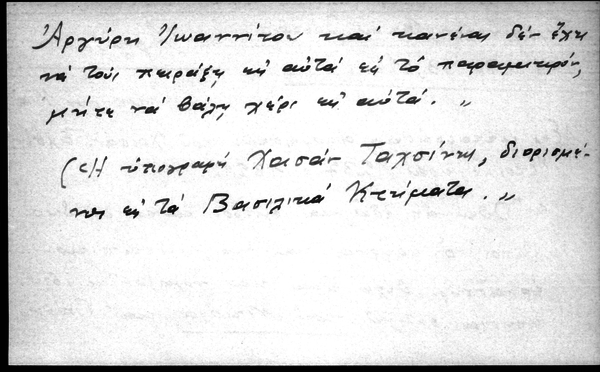 Ἀργύρη Ἰωαννίτου καί κανένας δέν ἔχει
νά τούς πειράξη εἰς αὐτά εἰς τό παραμικρόν,
μήτε νά βάλη χέρι εἰς αὐτά. "
(Ἡ ὑπογραφή Χασάν Ταχσίνης, διορισμέ-
νος εἰς τά Βασιλικά Κτήματα. "